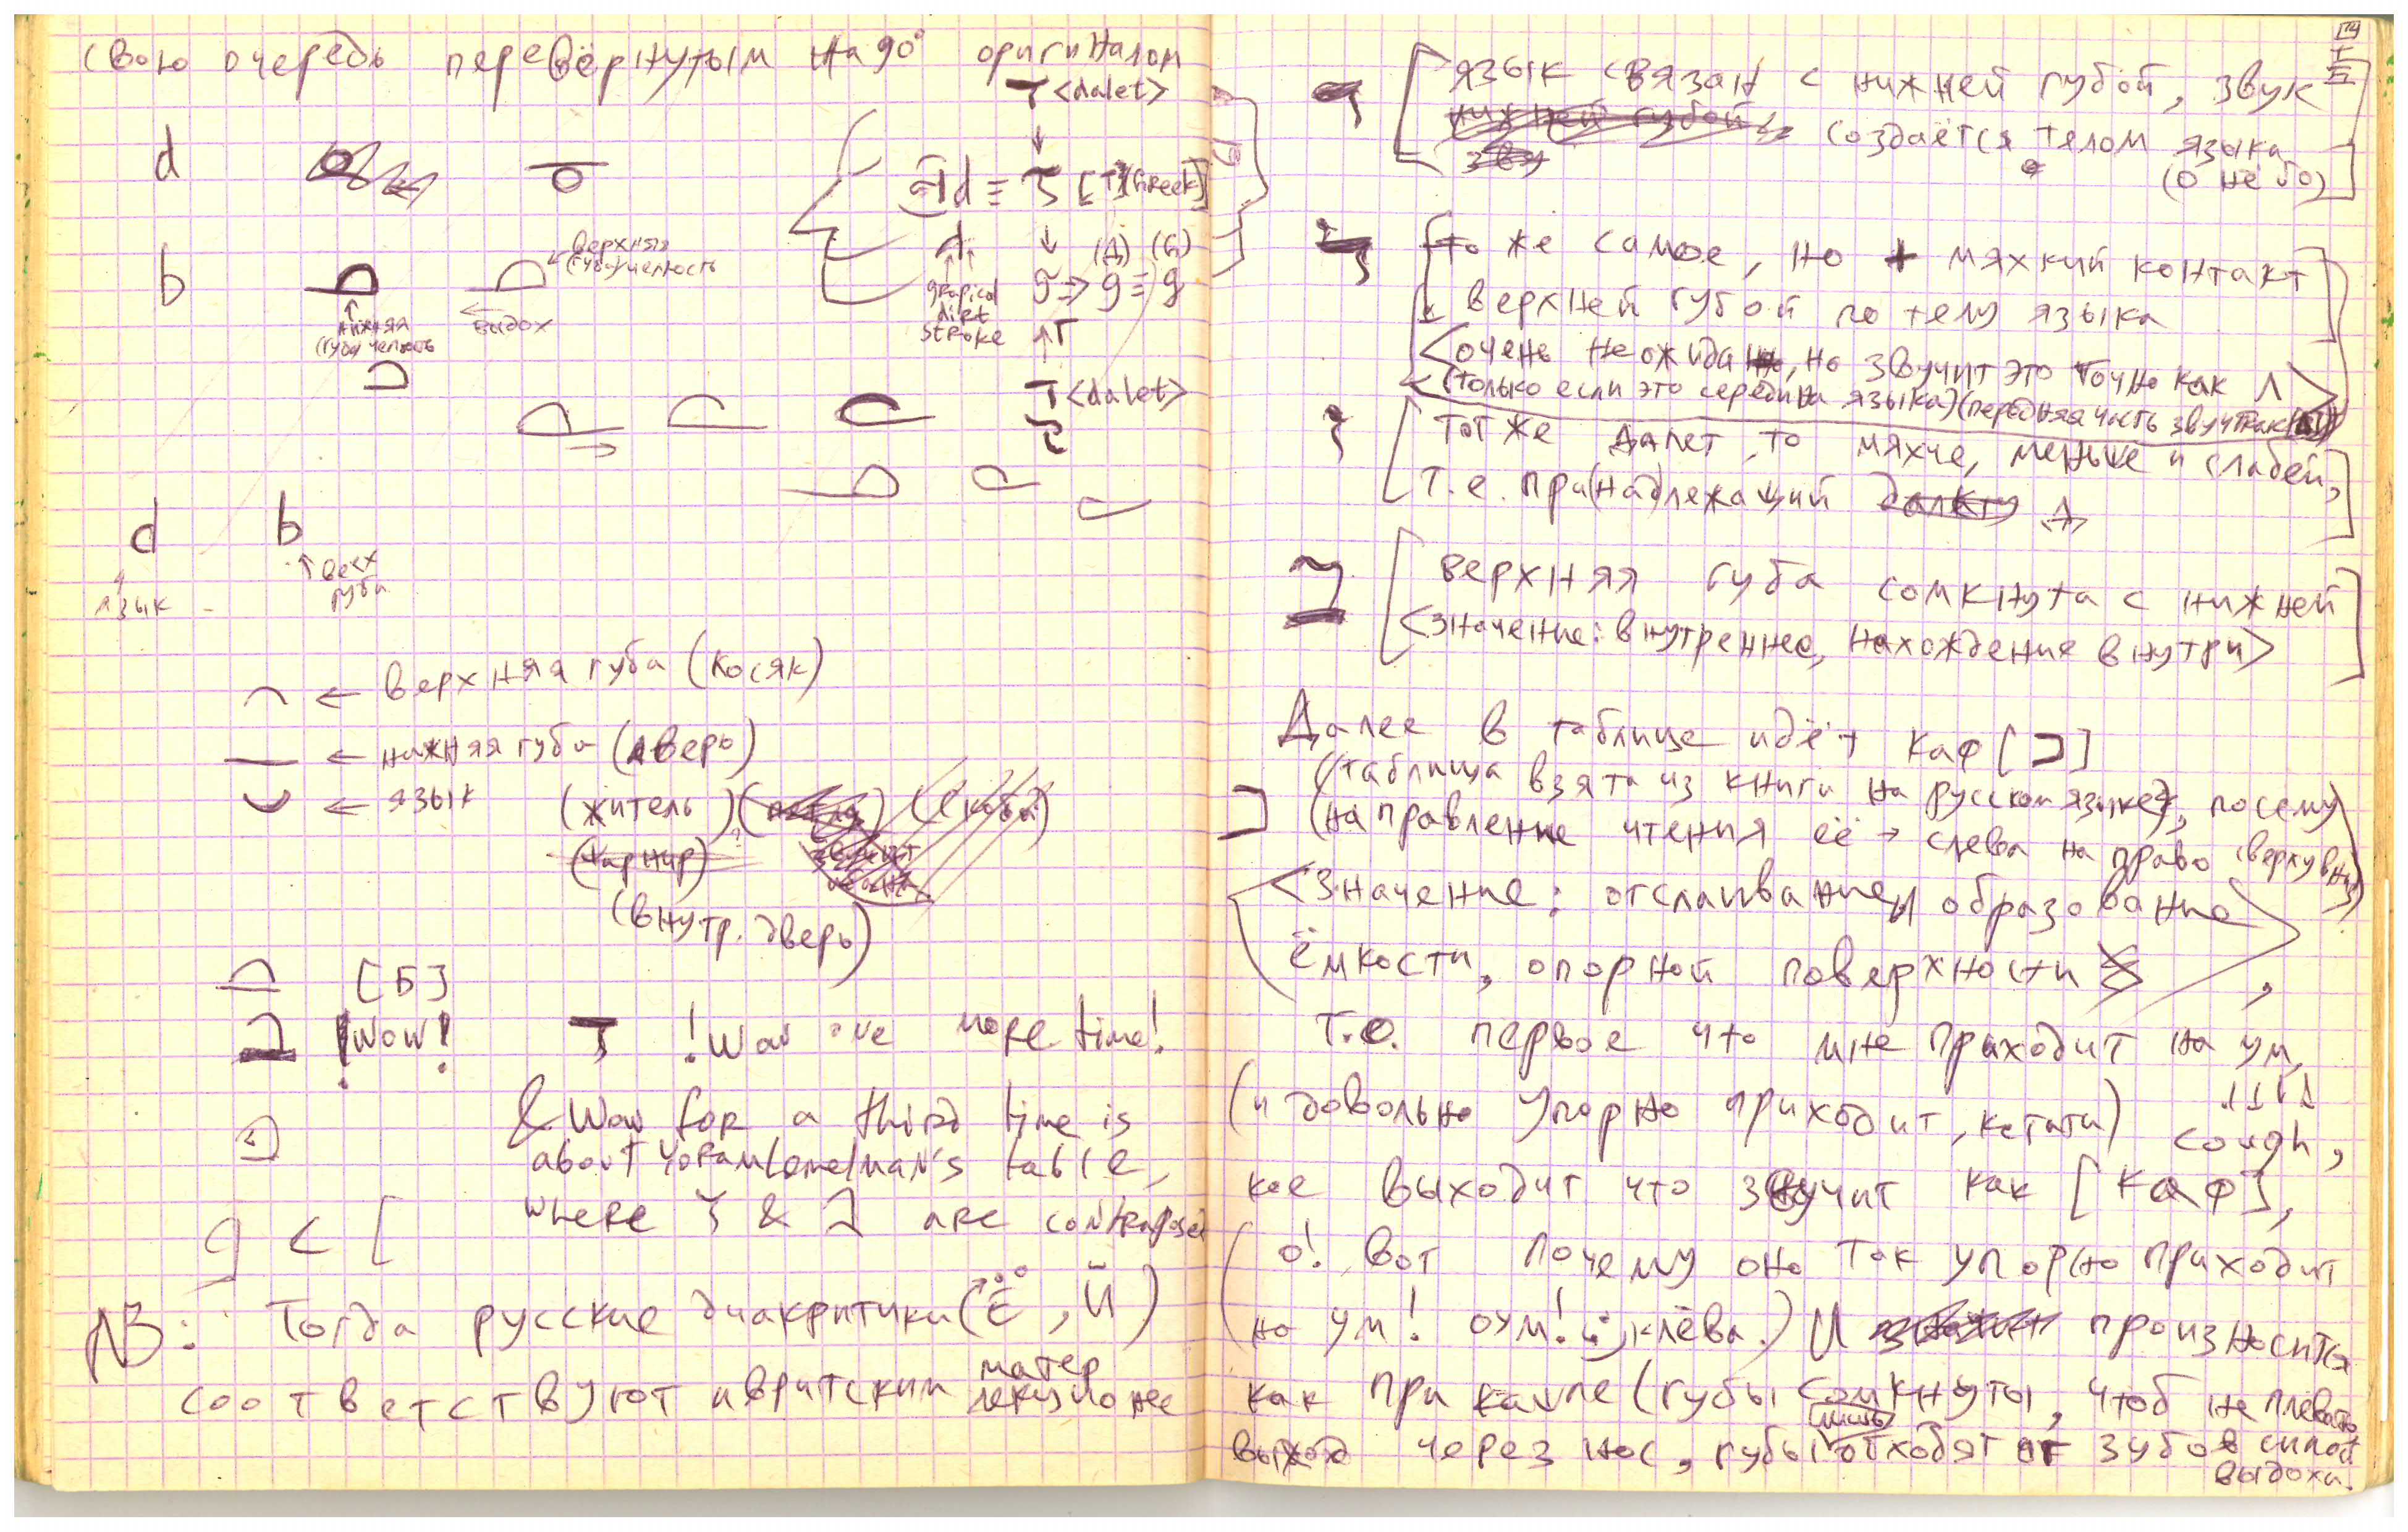 свою очередь перевёрнутым на 90° оригиналом
Т <dalet>
↓
d
d ≡ [T] (Greek)
b
← верхняя
(губа) челюсть
↑
нижняя
(губа) челюсть
←
выдох
d
↑ ↑
grapical
dirt
stroke
↓ (Д) (б)
g ≡ g
↑ Г
Т <dalet>
→
d b
↑
язык
↑ верх
губа
← верхняя губа (косяк)
← нижняя губа (дверь)
← язык (житель)
(шарнир)
(внутр. дверь)
[Б]
!Wow! !Wow one more time!
& Wow for a third time is
about table,
where & are contraposed
g < [
NB: Тогда русские диакритики (Ё, Й)
соответствуют ивритским матер
лекционес
язык связан с нижней губой, звук
нижней губой,
зву
создаётся телом языка
(о нёбо)
то же самое, но + мягкий контакт
верхней губой по телу языка
<очень неожидано, но звучит это точно как Л>
(только если это середина языка) (передняя часть звучит как
тот же далет, то мяхче, меньше и слабей,
т.е. при(над)лежащий далету Д
верхняя губа сомкнута с нижней
<значение: внутреннее, нахождение внутри>
Далее в таблице идёт каф [כ]
(таблица взята из книги на русском языке, посему
(направление чтения её → слева на право сверху вниз)
<значение: отслаивание, образование
ёмкости, опорной поверхности>,
т.е. первое что мне приходит на ум,
(и довольно упорно приходит, кстати) cough,
кое выходит что звучит как [каф],
(о! вот почему оно так упорно приходит
на ум! оум! клёва.) И произносится
как при кашле (губы сомкнуты, чтоб не плевать
выход через нос, губы лишь отходят от зубов силой
выдоха.